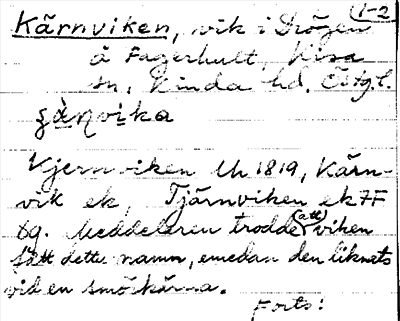 1-2
Kärnviken, vik i Drögen
å Fagerhult, Kisa
sn, Kinda hd. Östg.l.
çä̀ɳvika
Kjernviken Uh 1819, Kärn-
vik ek, Tjärnviken ek 7F
tg. Meddelaren trodde (att) viken
fått detta namn, emedan den liknats
vid en smörkärna.
Forts!